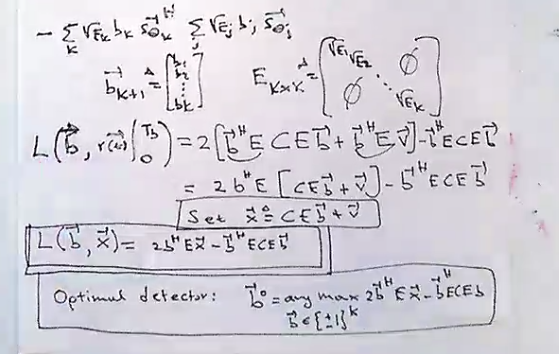 - Σ_k √E_k b_k s⃗_{θ_k}^H Σ_j √E_j b_j s⃗_{θ_j}
b⃗_{K+1} ≜ [b_1 b_2 ⋮ b_K] E_{K×K} ≜ [√E_1 √E_2 ⋱ √E_K ∅ ∅]
L(b⃗, r⃗(t)|_0^{T_b}) = 2[b⃗^H E C E b⃗ + b⃗^H E v⃗] - b⃗^H E C E b⃗
= 2 b^H E [C E b⃗ + v⃗] - b⃗^H E C E b⃗
Set x⃗ ≜ C E b⃗ + v⃗
L(b⃗, x⃗) = 2b^H E x⃗ - b⃗^H E C E b⃗
Optimum detector: b⃗° = arg max 2b⃗^H E x⃗ - b⃗^H E C E b
b⃗ ∈ {±1}^K